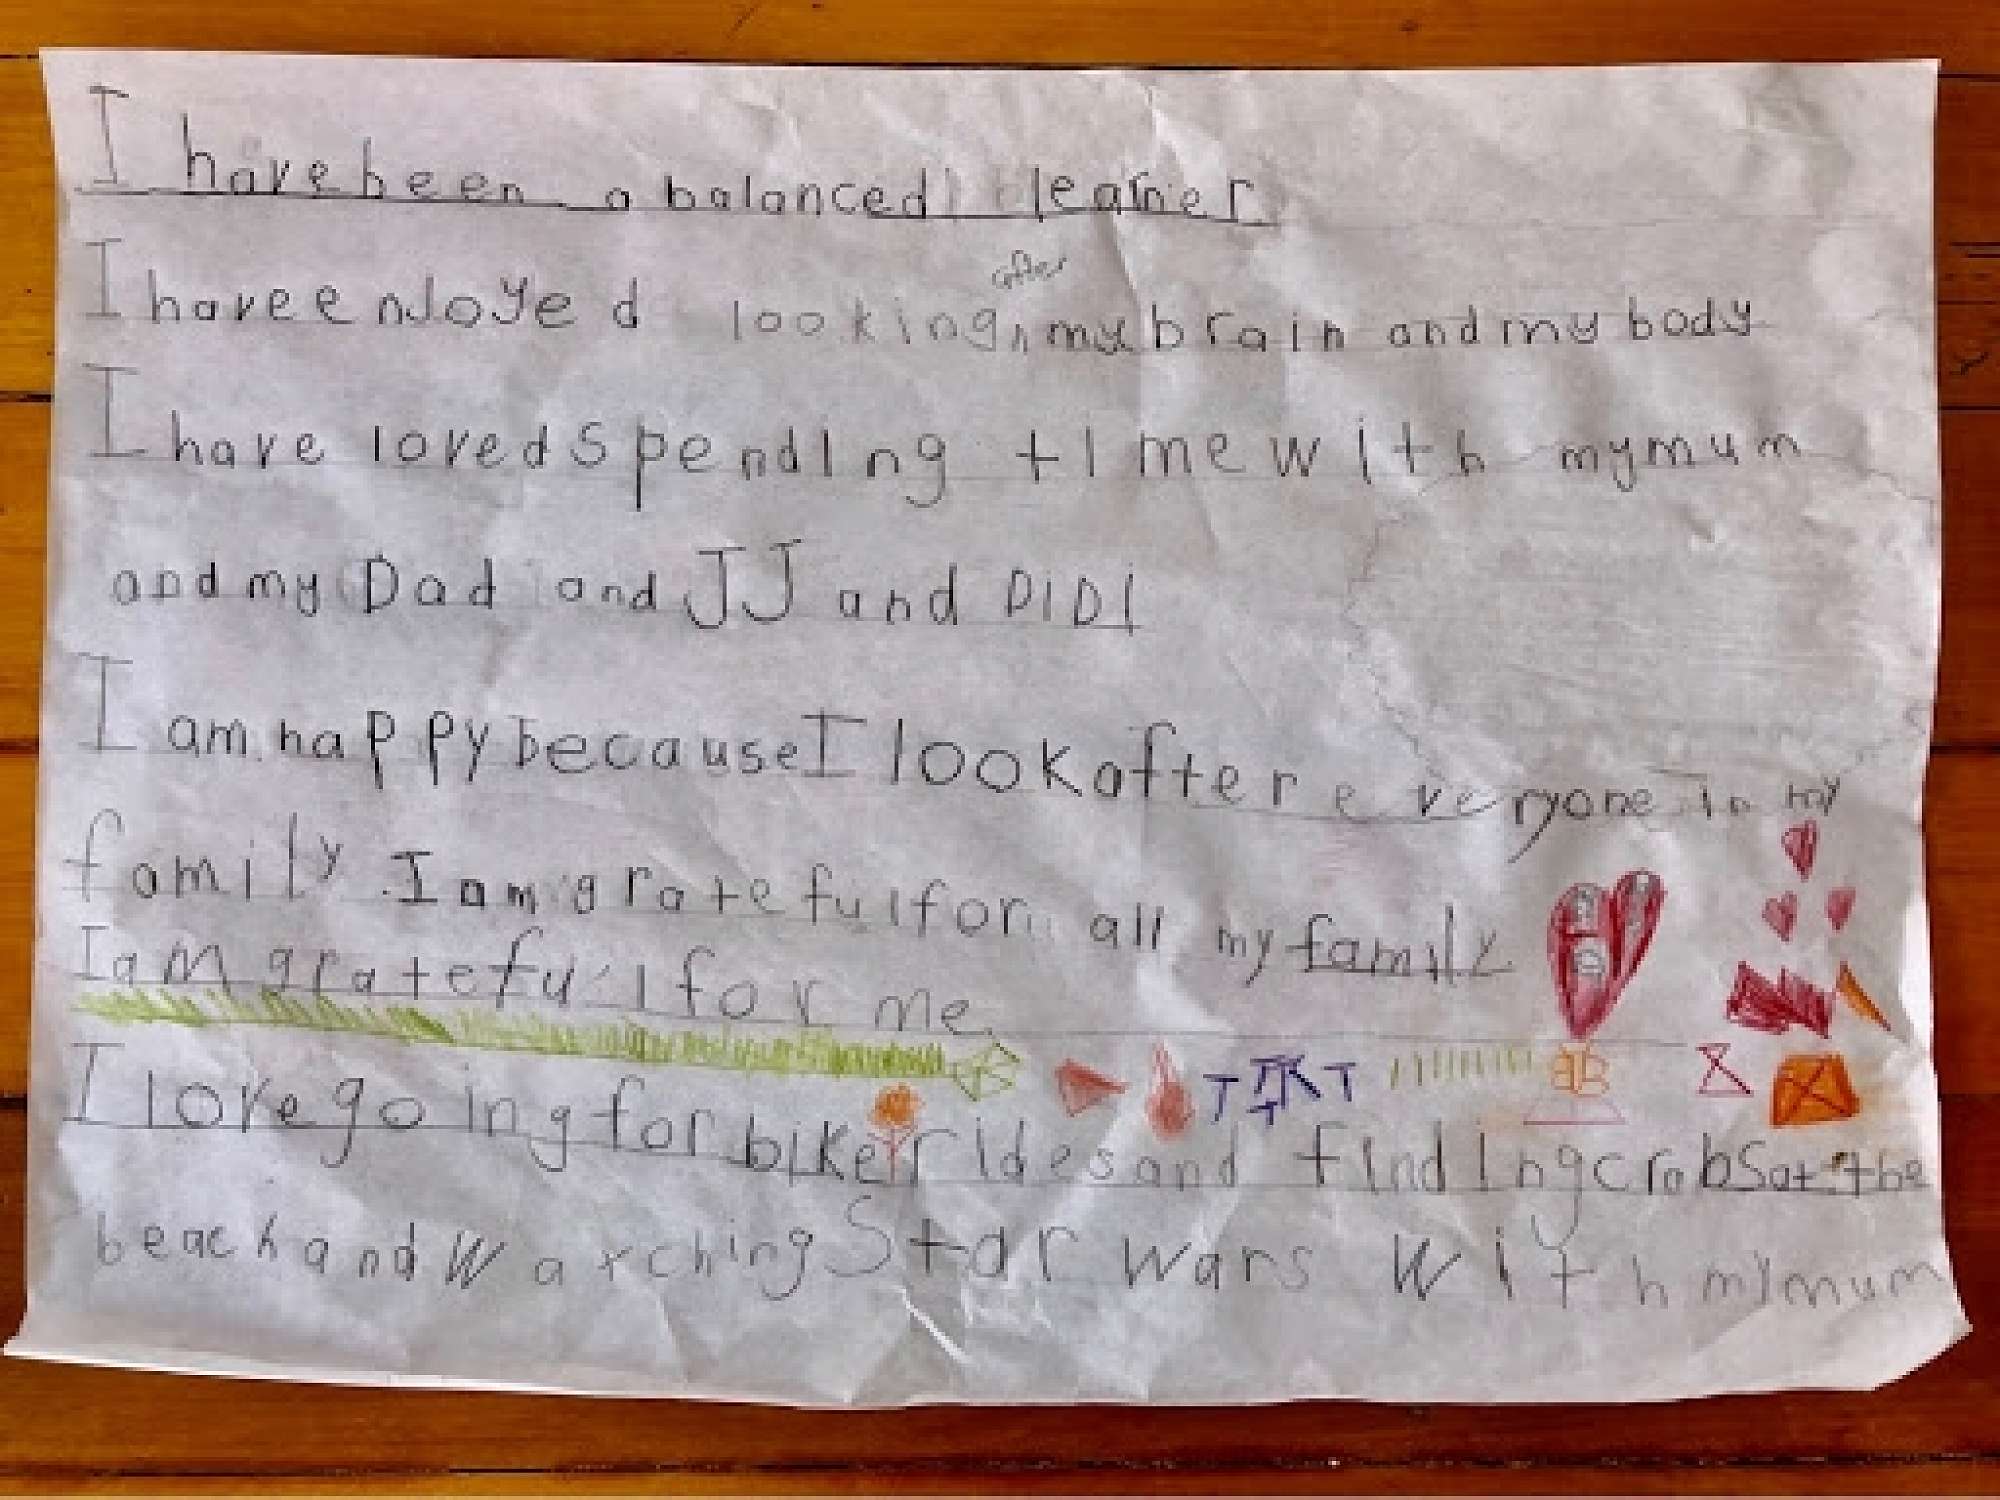 I have been a balanced learner
I have enJoyed looking after my brain and my body
I have loved spending time with my mum
and my Dad and JJ and DiDi
I am happy because I look after everyone in my
family I am grateful for all my family
I am grateful for me
I love going for bike rides and finding crabs at the
beach and Watching Star wars With my mum